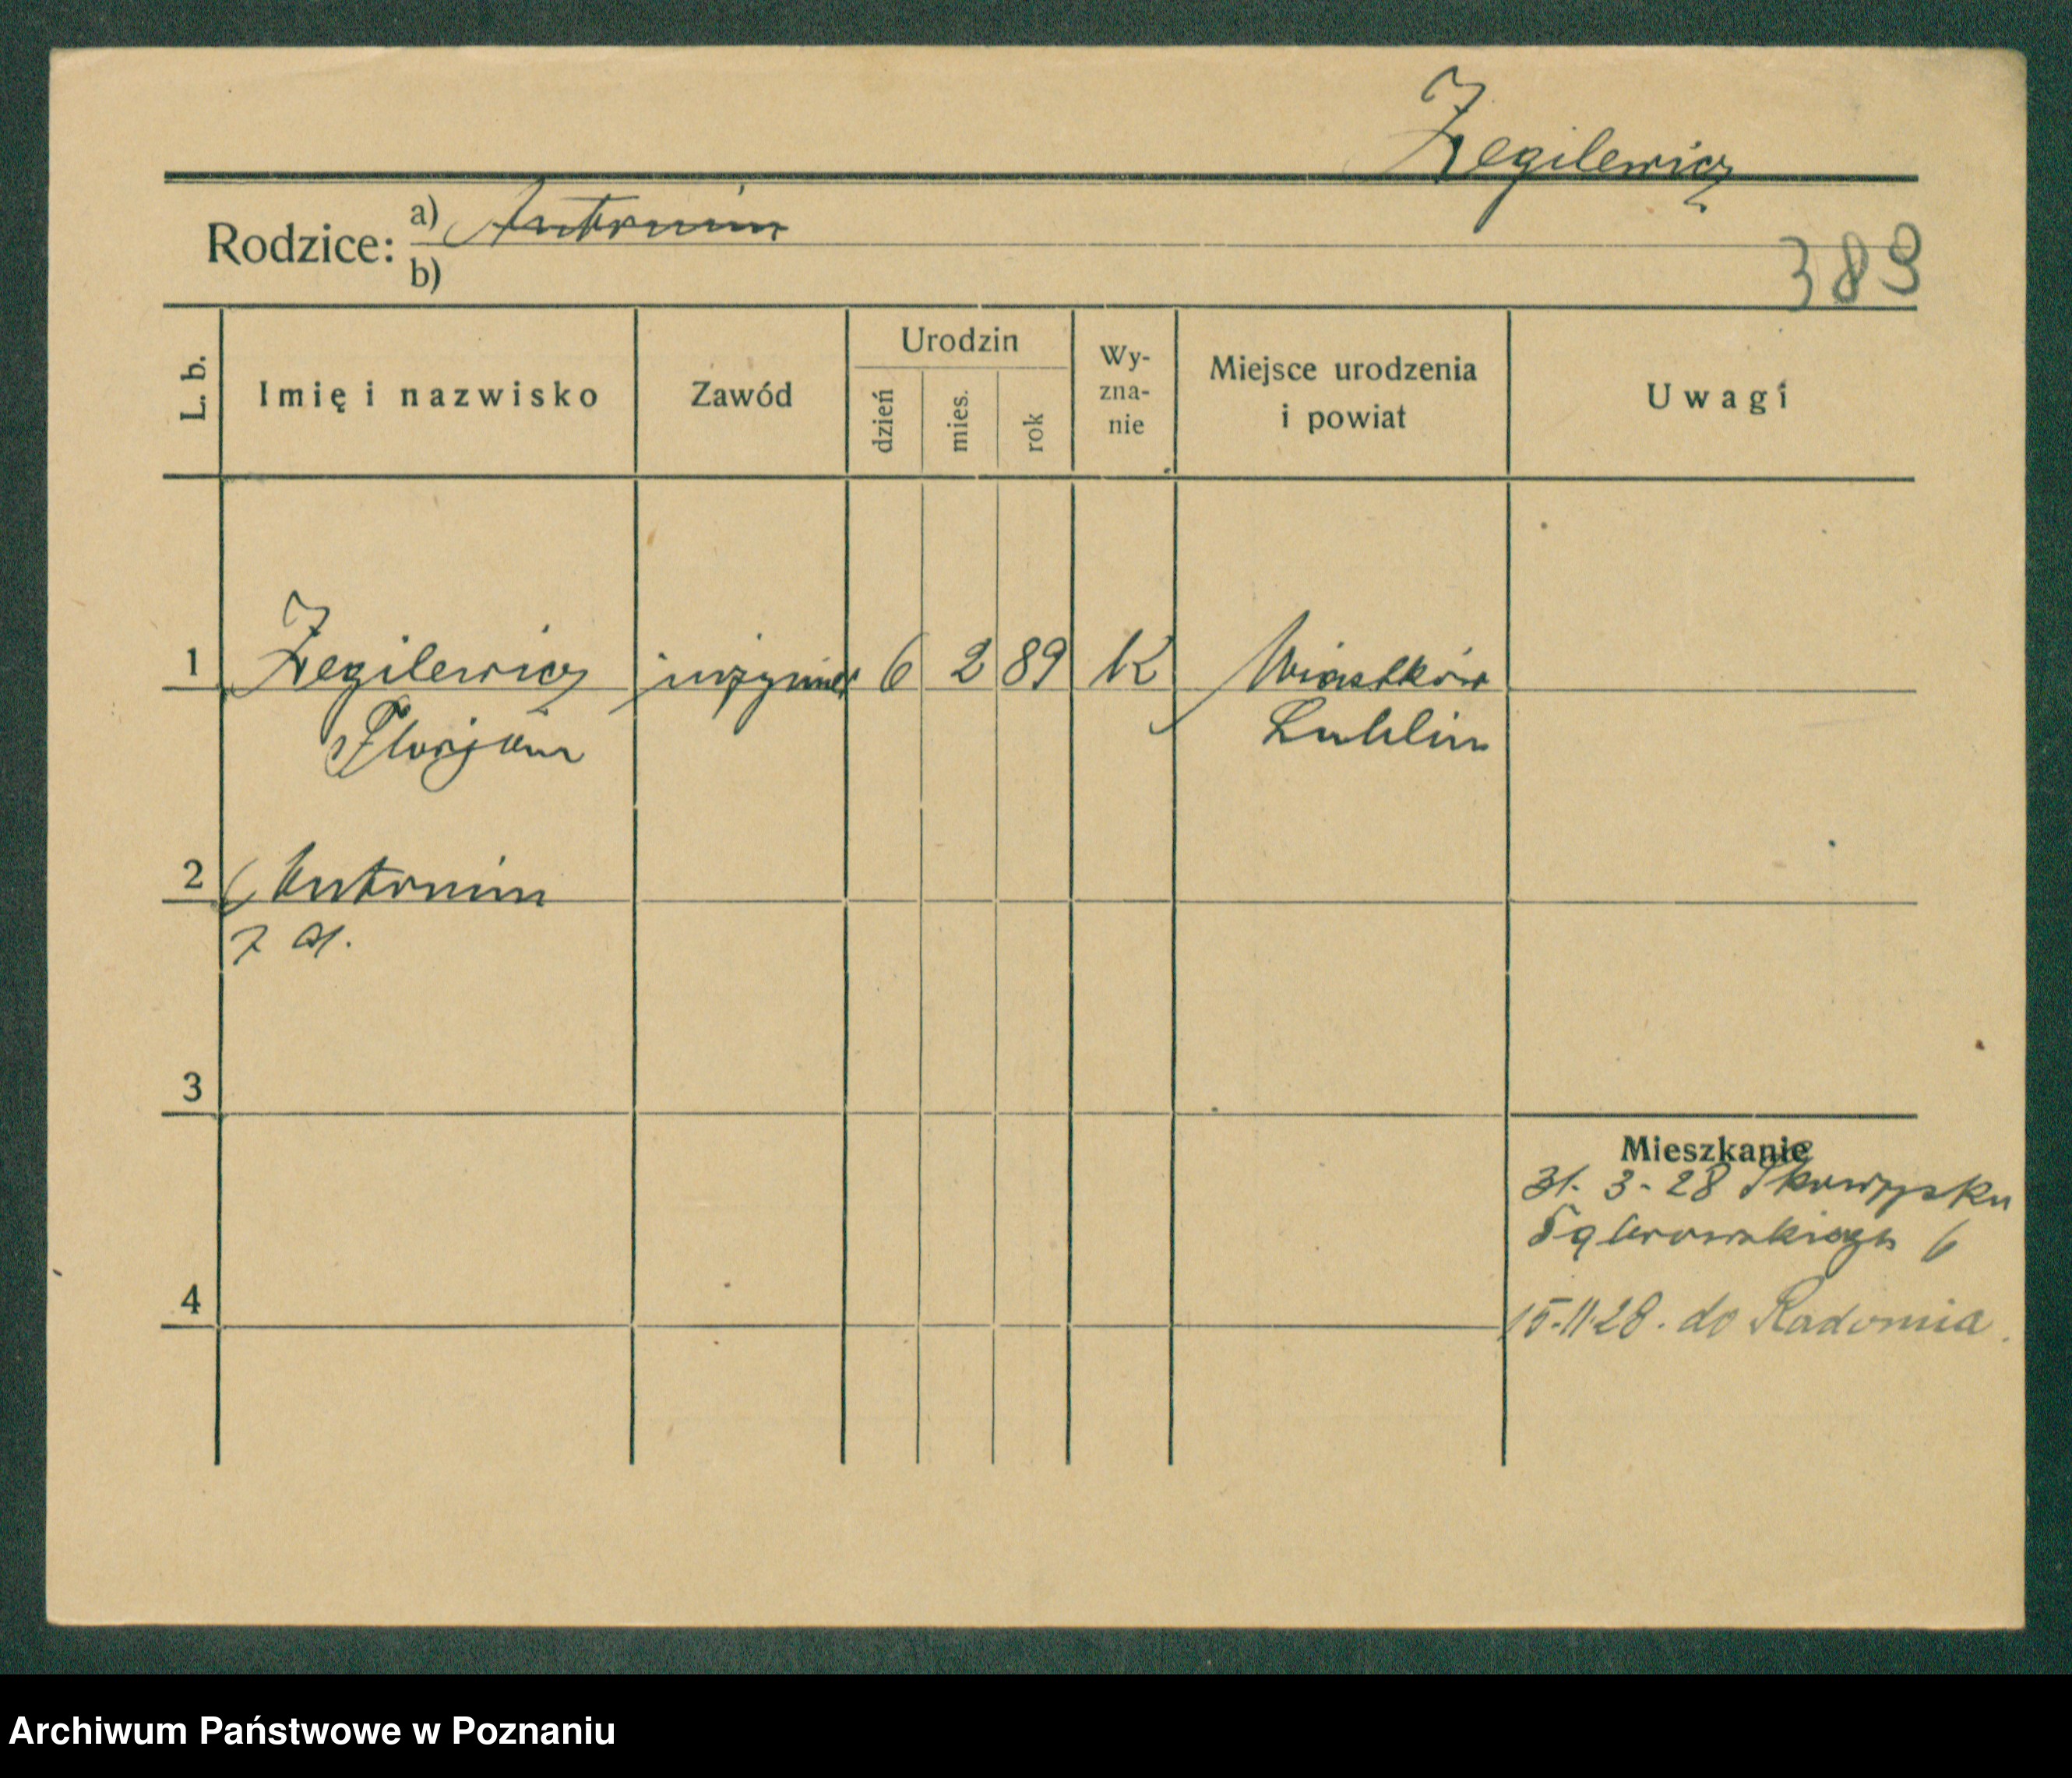 Żegilewicz
Rodzice: a) Antonim
b)
389
L. b. Imię i nazwisko Zawód Urodzin dzień mies. rok Wy-zna-nie Miejsce urodzenia i powiat Uwagi
1 Żegilewicz inżynier 6 2 89 K Miastków
Florjan Lublin
2 Antonim
z
3
Mieszkanie
31. 3. 28
Dąbrowskiego 6
4
15.11.28. do Radomia.
Archiwum Państwowe w Poznaniu